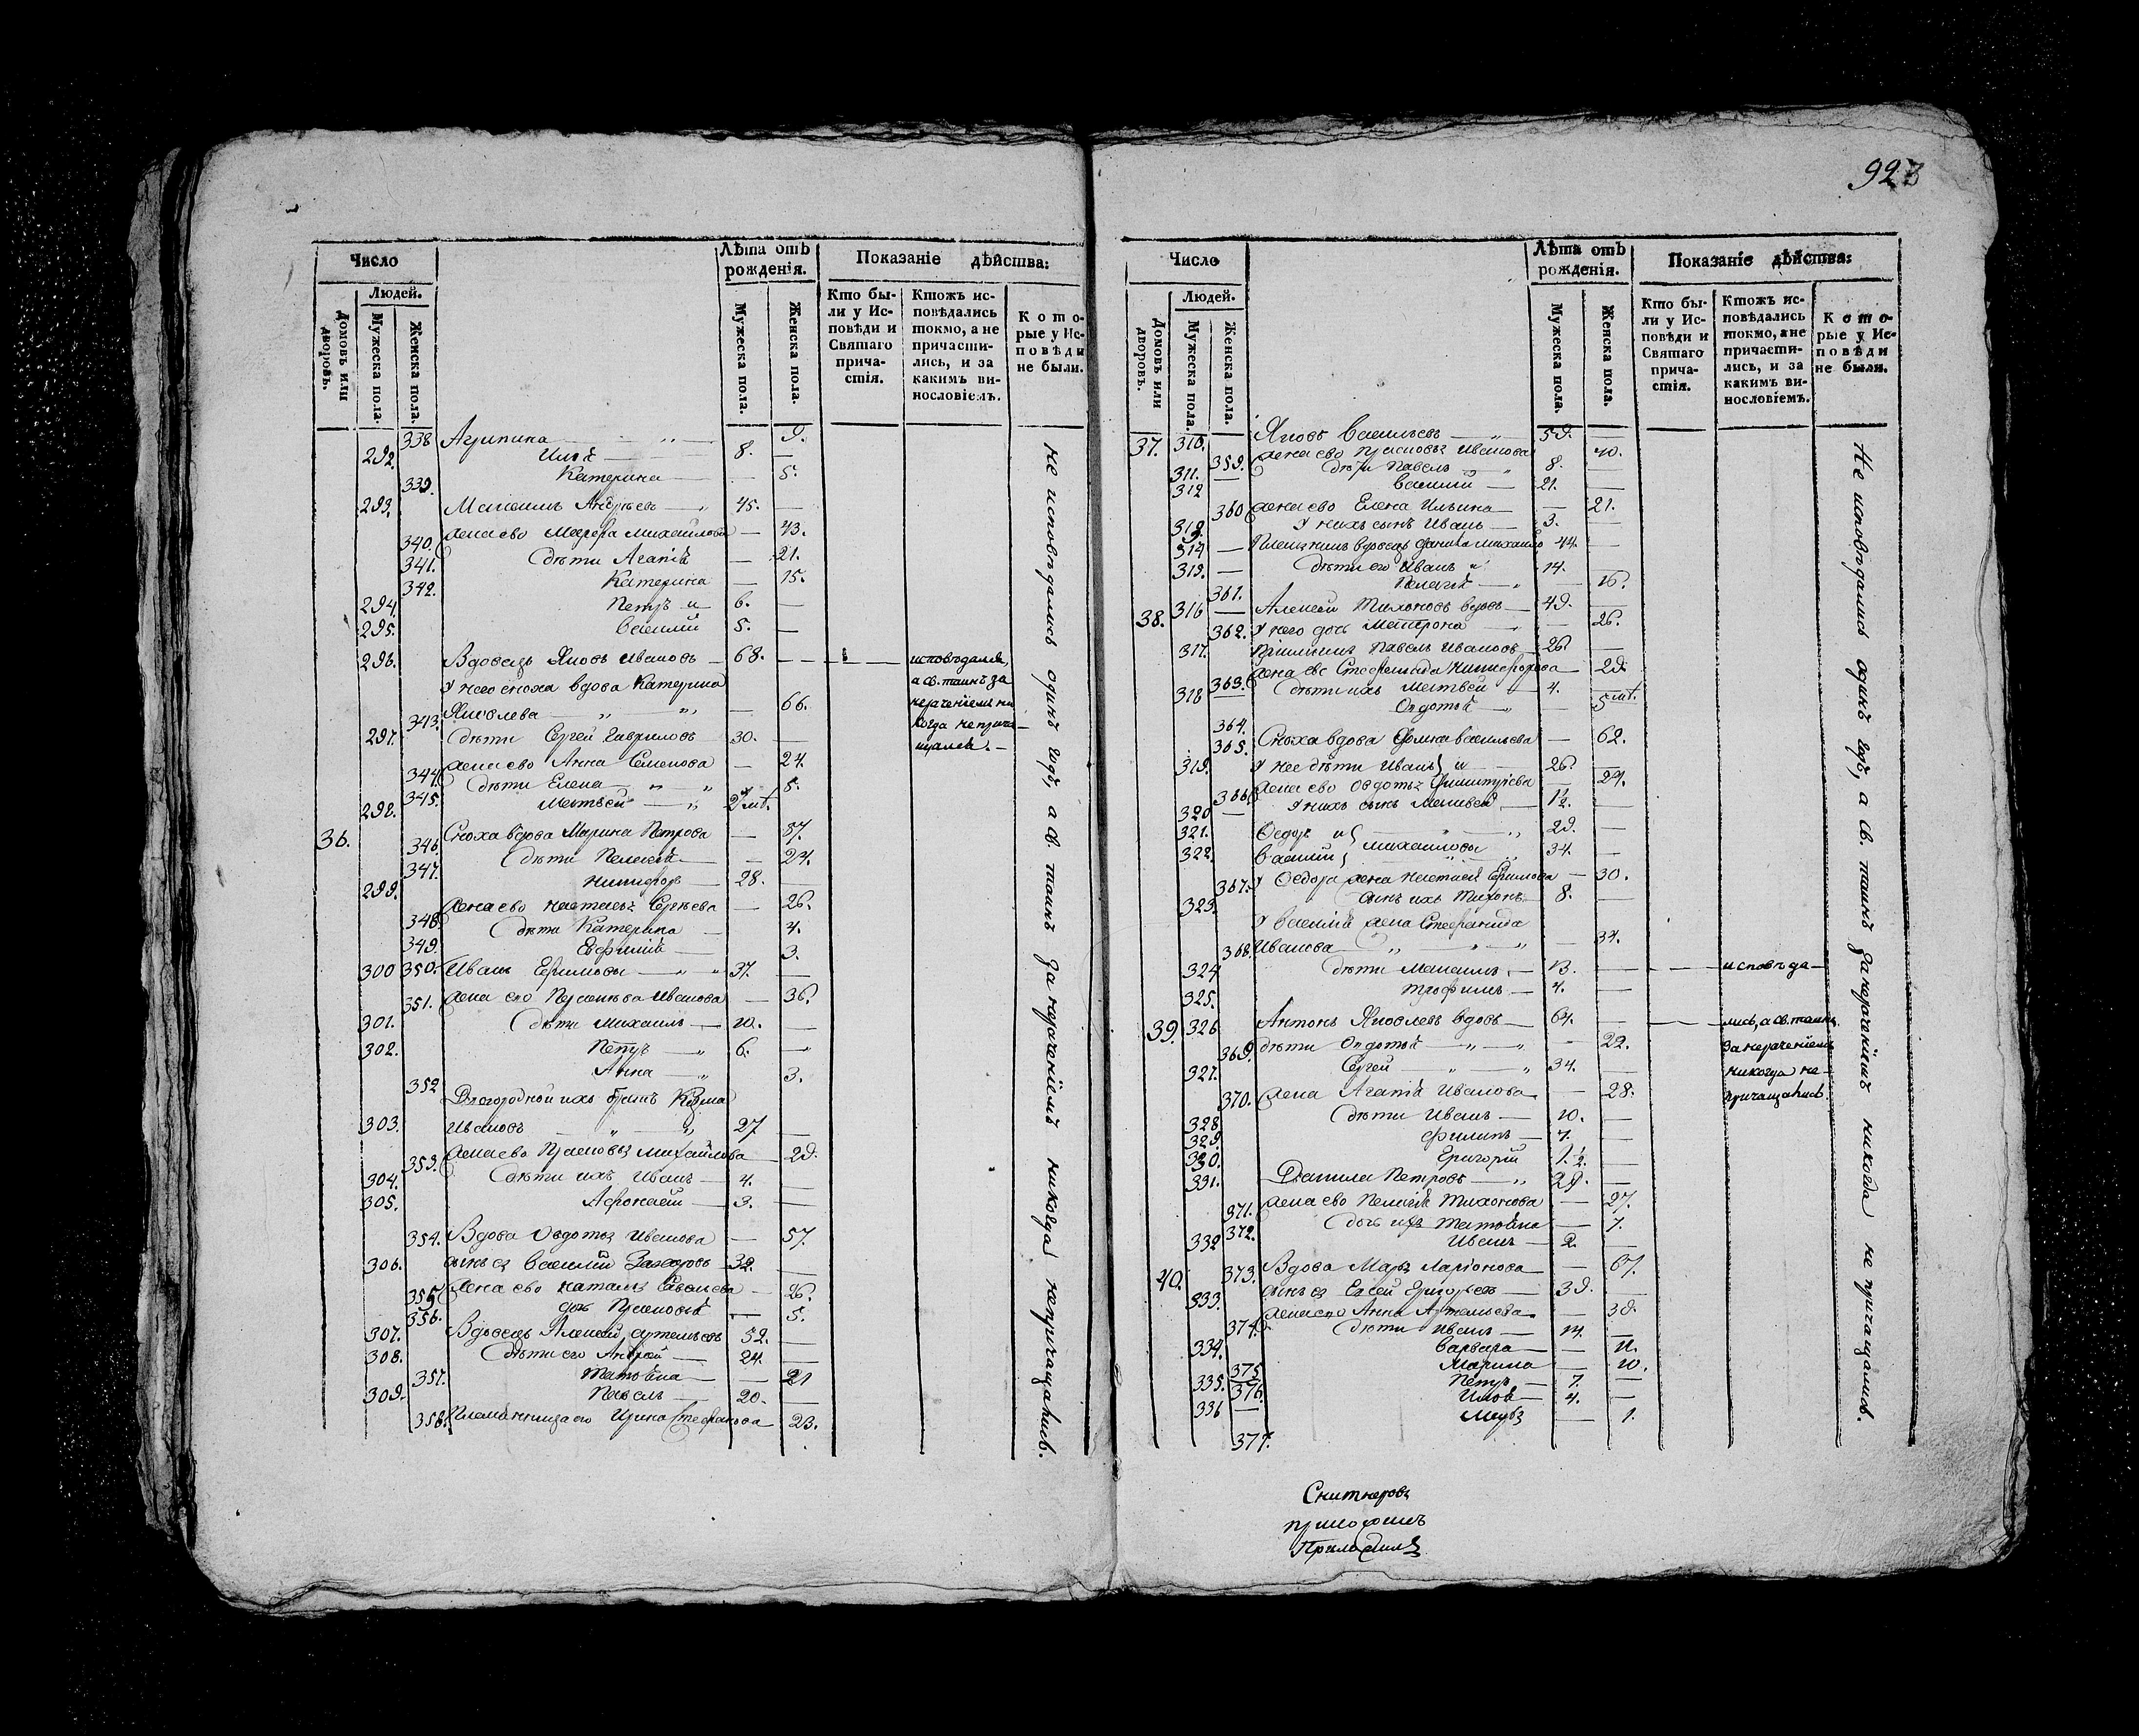 923
Число
Лѣта отъ рожденія.
Показаніе дѣйства:
Людей.
Домовъ или дворовъ.
Мужеска пола.
Женска пола.
Мужеска пола.
Женска пола.
Кто бы-
ли у Ис-
повѣди и
Святаго
прича-
стія.
Ктожъ ис-
повѣдались
токмо, а не
причасти-
лись, и за
какимъ ви-
нословіемъ.
Кото-
рые у Ис-
повѣди
не были.
338 Агрипина 9.
292. 8.
339. Катерина 5.
293. Максимъ Андреевъ 45.
340. жена ево Михайлова 43.
341. дѣти Агапія 21.
342. Катерина 15.
294 Петръ и 6.
295. Василий 5.
296. Вдовецъ Яковъ Ивановъ 68. исповѣдался,
У него сноха вдова Катерина а св. таинъ за
343. Яковлева 66. нераченіемъ ни
когда не прича-
297. дѣти Сергей Гавриловъ 30. щался.
344. жена ево Анна Семенова 24.
345. дѣти Елена 5.
298. Матвей
36. 346. Сноха вдова Марина Петрова 57.
347. дѣти Пелагея 24.
299. Никифоръ 28.
348. жена ево Настасья Сергѣева 26.
349. дѣти Катерина 4.
350. Евфимія 3.
300 Иванъ Ефимовъ 37.
351. жена его Ивановa 36.
301. дѣти Михаилъ 10.
302. Петръ 6.
352 Анна 3.
ихъ братъ Козма
303. Ивановъ 27
353. жена ево Михайлова 29.
304. дѣти ихъ Иванъ 4.
305. Афонасей 3.
354. Вдова Овдотья Иванова 57.
306. сынъ ея Василий Захаровъ 32.
355. жена ево Наталья 26.
356. дочь 5.
307. Вдовецъ Алексей 52.
308. дѣти его Андрей 24.
357. Татьяна 21
309. Павелъ 20.
358. Племянница его Ирина Стефанова 23.
не исповѣдались одинъ годъ, а св. таинъ за нераченіемъ никогда непричащались.
Число
Лѣта отъ рожденія.
Показаніе дѣйства:
Людей.
Домовъ или дворовъ.
Мужеска пола.
Женска пола.
Мужеска пола.
Женска пола.
Кто бы-
ли у Ис-
повѣди и
Святаго
прича-
стія.
Ктожъ ис-
повѣдались
токмо, а не
причасти-
лись, и за
какимъ ви-
нословіемъ.
Кото-
рые у Ис-
повѣди
не были.
37. 310. Яковъ Васильевъ 59.
359. жена ево Иванова 40.
311. дѣти Павелъ 8.
312 Василий 21.
360 жена ево Елена Ильина 21.
313. У нихъ сынъ Иванъ 3.
314 вдовецъ 44.
315. дѣти его Иванъ 14.
361. Пелагея 16.
38. 316 Алексей Тихоновъ вдовъ 49.
362. У него дочь Матрона 26.
317. Павелъ Ивановъ 26
363. жена ево Никифорова 29.
318 дѣти ихъ Матвей 4.
364. Овдотья
365. Сноха вдова Васильева 62.
319. У нее дѣти Иванъ и 26
366. жена ево Овдотья 24.
320 У нихъ сынъ 1/2.
321. Федоръ и 29.
322. Василий Михайловы 34.
367. У Федора жена Настасья Ефимова 30.
323. сынъ ихъ Тихонъ 8.
У Василия жена Стефанида
368. Иванова 34.
324 дѣти Максимъ 13. исповѣда-
325. Трофимъ 4.
39. 326 Антонъ Яковлевъ вдовъ 64. лись, а св. таинъ
369. дѣти Овдотья 22. за нераченіемъ
327. Сергей 34. никогда не
370. жена Агапія Иванова 28. причащались.
328 дѣти Иванъ 10.
329. Филипъ 7.
330. Григорій
331. Данила Петровъ 29.
371. жена ево Пелагея Тихонова 27.
372. дочь ихъ Татьяна 7.
332 Иванъ 2.
40. 373. Вдова Марья Ларіонова 67.
333. сынъ ея Григорьевъ 39.
374. жена его Анна 38.
334. дѣти Иванъ 14.
375 Варвара 11.
376. Марина 10.
335. Петръ 7.
336 4.
377. Марья 1.
Не исповѣдались одинъ годъ, а св. таинъ за нераченіемъ никогда не причащались.